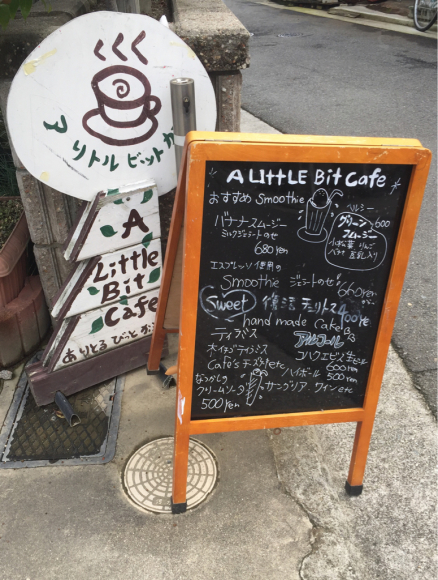 アリトルビットカ
A
Little
Bit
Cafe
ありとる びっと
A Little Bit Cafe
おすすめ Smoothie
バナナスムージー
ミルクジェラートのせ
680yen
ヘルシー
グリーン 600
スムージー
小松菜 りんご
バナナ 豆乳入り
エスプレッソ使用の
Smoothie ジェラートのせ
660yen
Sweet 復活 チュリトス 400yen
hand made Cake
ティラミス
アルコール
コハクエビス生ビール
600yen
Cafe's チーズケーキetc
ハイボール
500yen
なつかしの
クリームソーダ
500yen
サングリア、ワイン etc